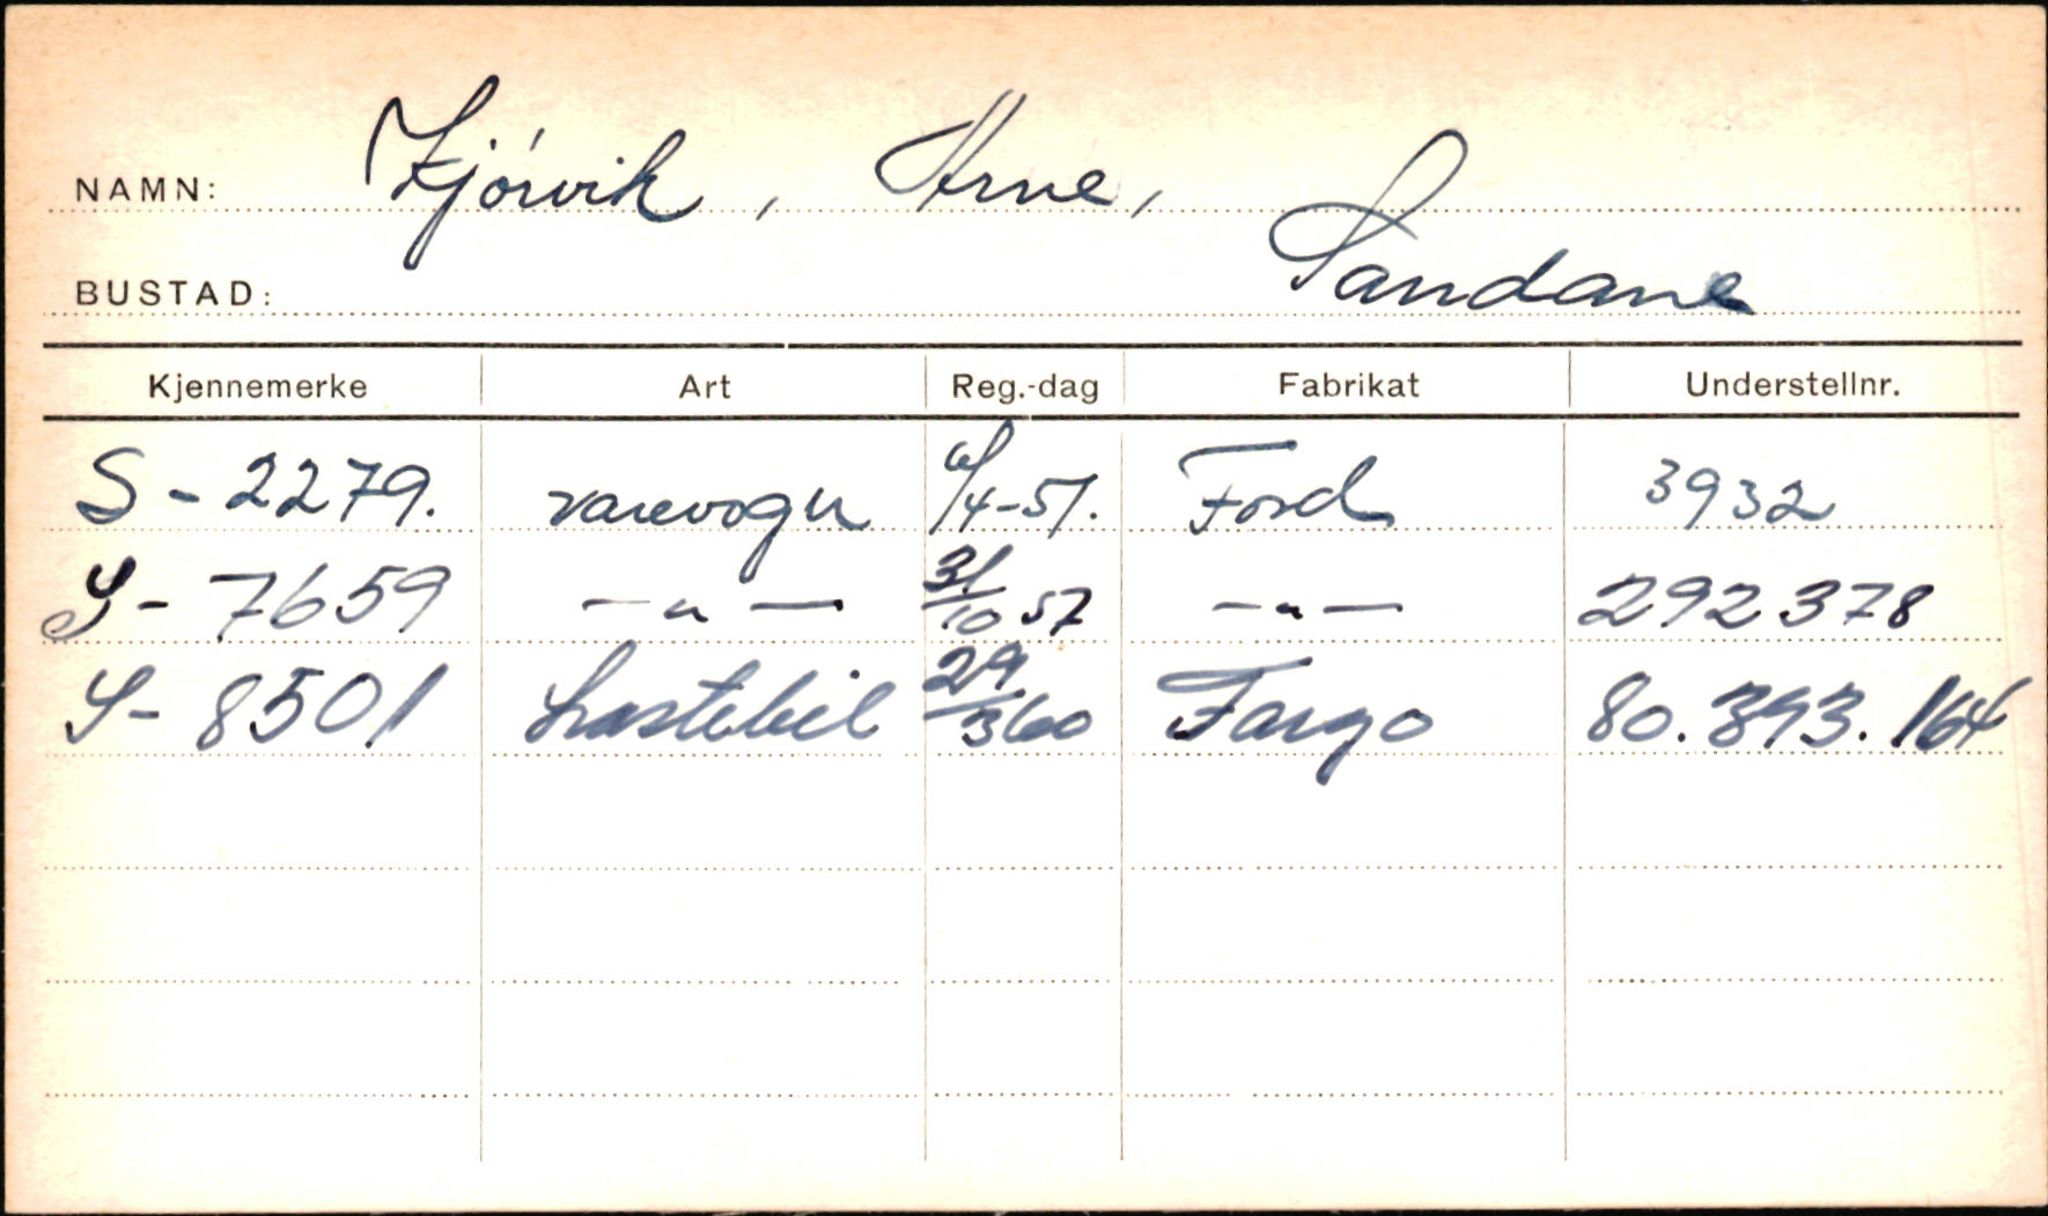 NAMN: Kjórvik, Arne,
BUSTAD: Sandane
Kjennemerke Art Reg.-dag Fabrikat Understellnr.
S - 2279. varevogn 6/4-51. Ford 3932
S - 7659 — " — 31/10 57 — " — 292378
S - 8501 Lastebil 29/3 60 Fargo 80.393.164